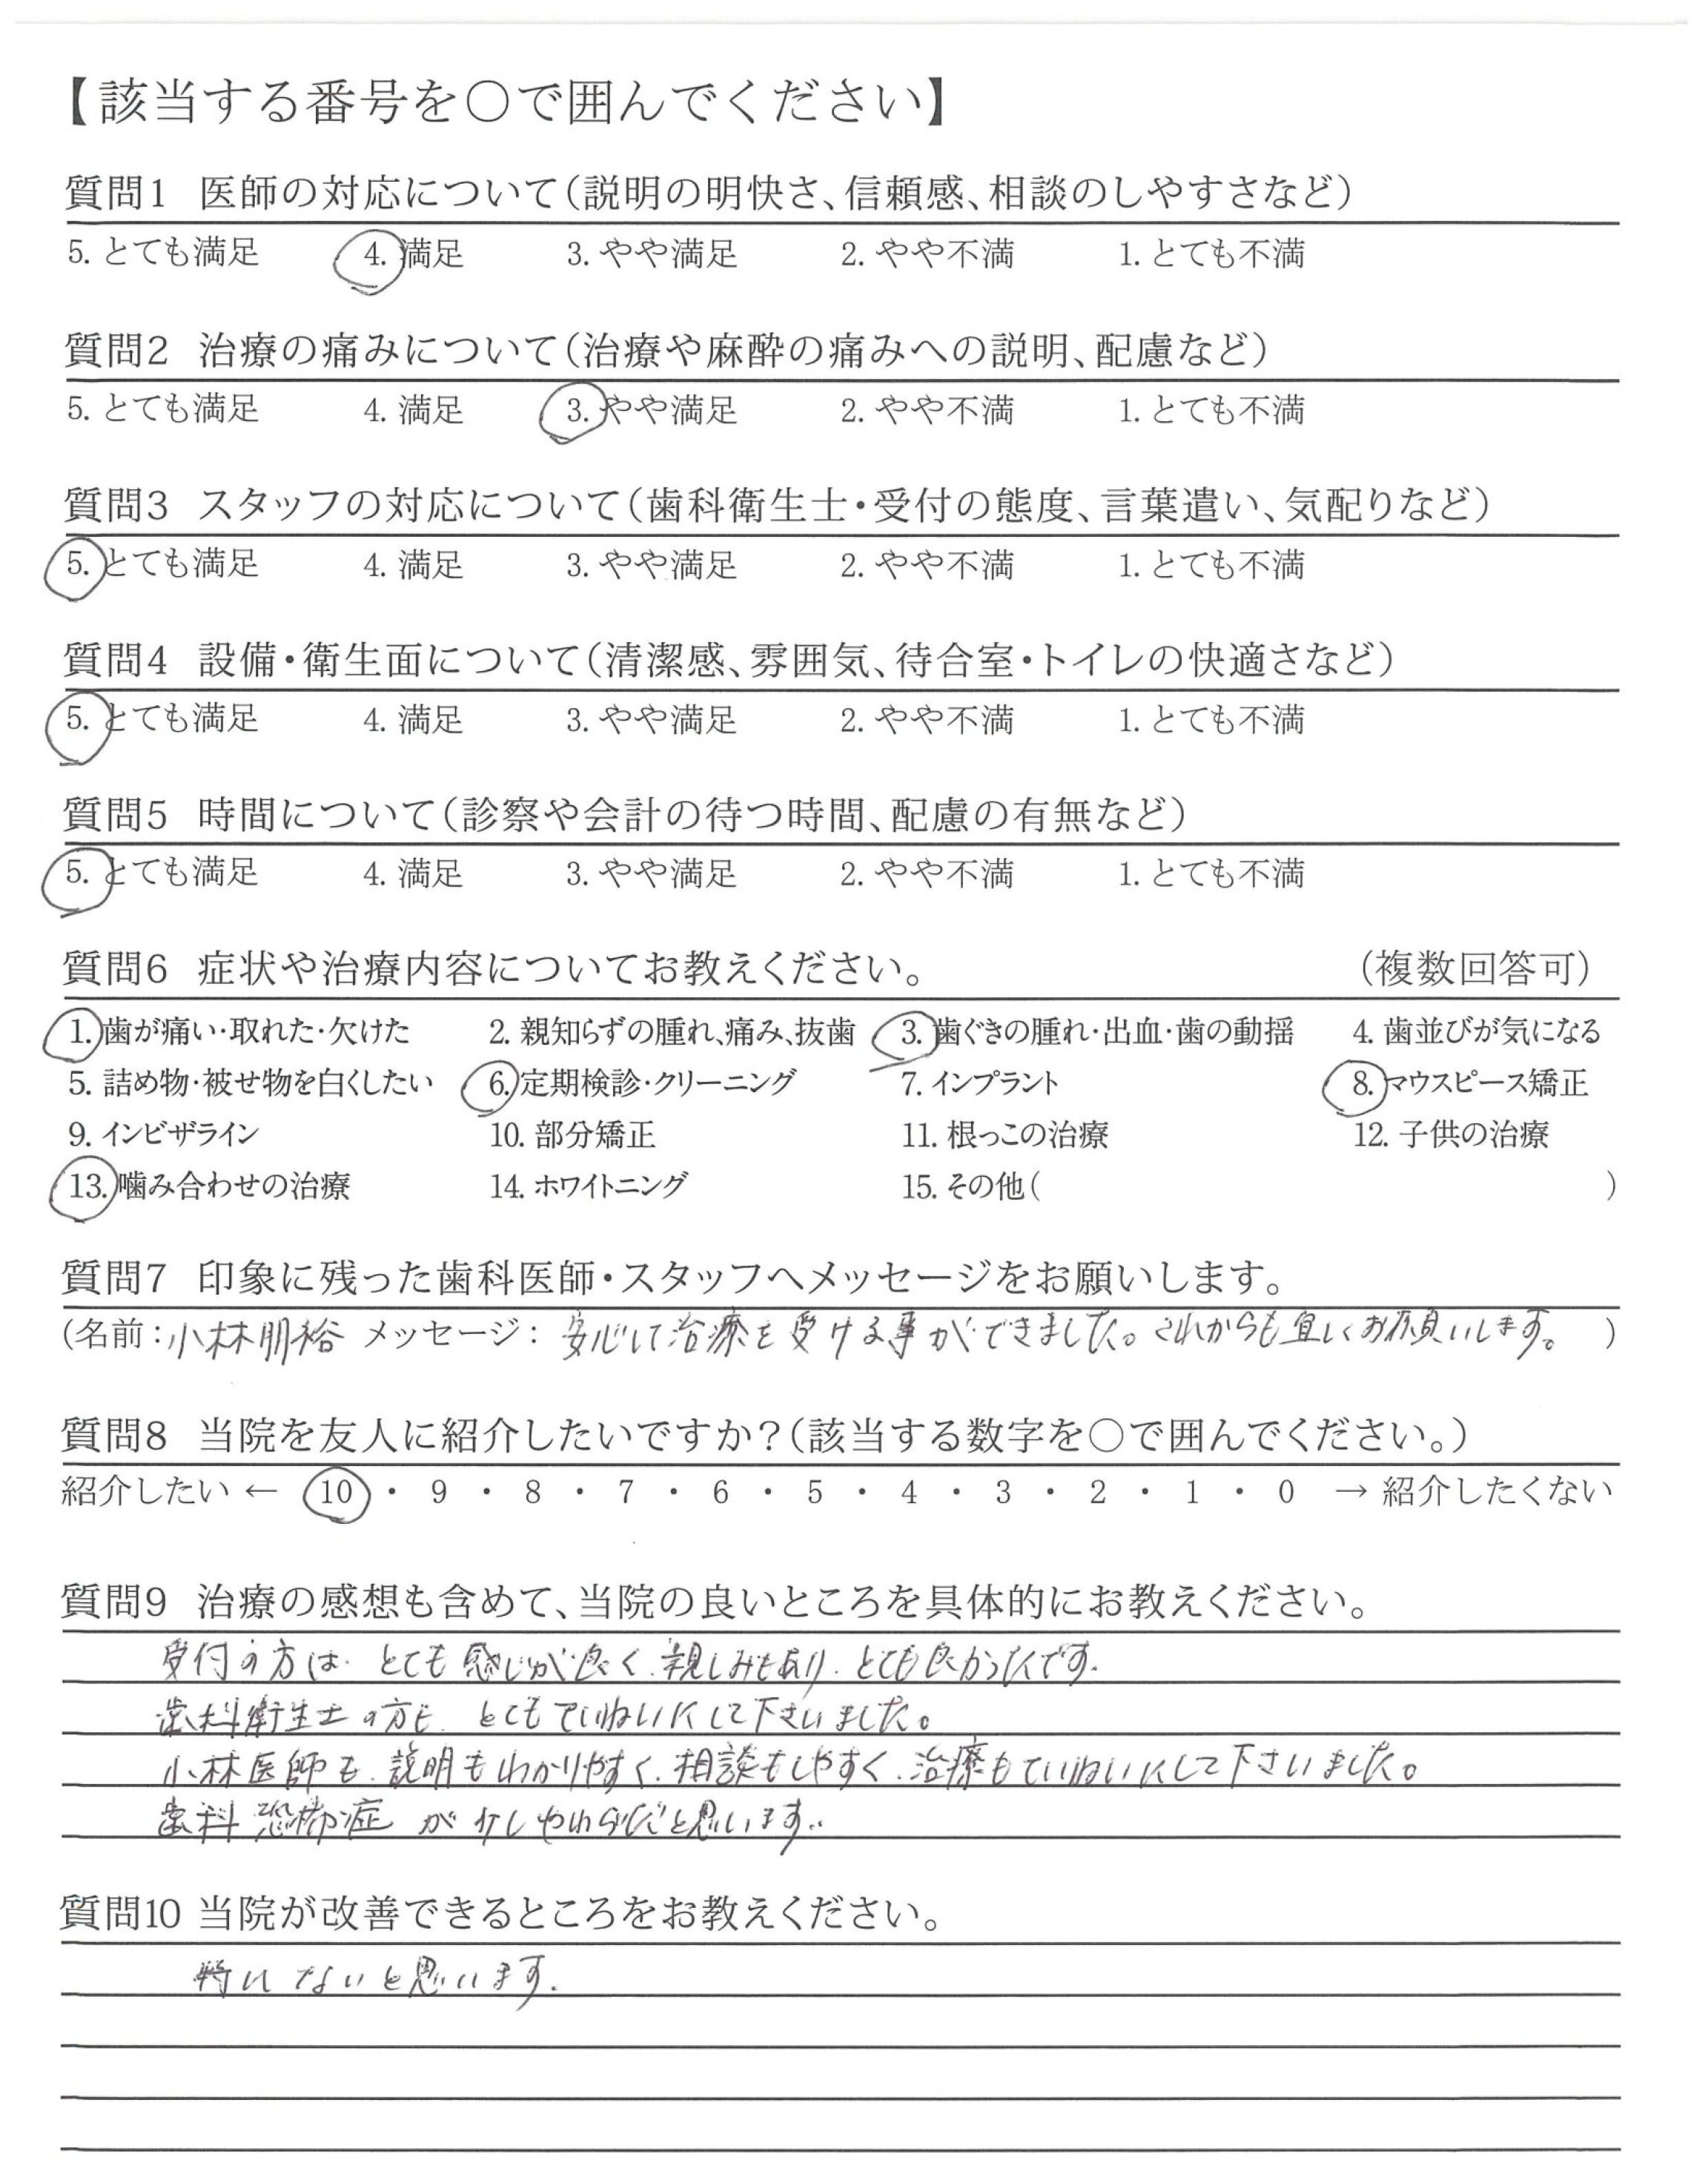 【該当する番号を〇で囲んでください】
質問1 医師の対応について（説明の明快さ、信頼感、相談のしやすさなど）
5. とても満足 4. 満足 3. やや満足 2. やや不満 1. とても不満
質問2 治療の痛みについて（治療や麻酔の痛みへの説明、配慮など）
5. とても満足 4. 満足 3. やや満足 2. やや不満 1. とても不満
質問3 スタッフの対応について（歯科衛生士・受付の態度、言葉遣い、気配りなど）
5. とても満足 4. 満足 3. やや満足 2. やや不満 1. とても不満
質問4 設備・衛生面について（清潔感、雰囲気、待合室・トイレの快適さなど）
5. とても満足 4. 満足 3. やや満足 2. やや不満 1. とても不満
質問5 時間について（診察や会計の待つ時間、配慮の有無など）
5. とても満足 4. 満足 3. やや満足 2. やや不満 1. とても不満
質問6 症状や治療内容についてお教えください。 （複数回答可）
1. 歯が痛い・取れた・欠けた 2. 親知らずの腫れ、痛み、抜歯 3. 歯ぐきの腫れ・出血・歯の動揺 4. 歯並びが気になる
5. 詰め物・被せ物を白くしたい 6. 定期検診・クリーニング 7. インプラント 8. マウスピース矯正
9. インビザライン 10. 部分矯正 11. 根っこの治療 12. 子供の治療
13. 噛み合わせの治療 14. ホワイトニング 15. その他（ ）
質問7 印象に残った歯科医師・スタッフへメッセージをお願いします。
（名前：小林朋裕 メッセージ：安心して治療を受ける事ができました。これからも宜しくお願いします。 ）
質問8 当院を友人に紹介したいですか？（該当する数字を〇で囲んでください。）
紹介したい ← 10 ・ 9 ・ 8 ・ 7 ・ 6 ・ 5 ・ 4 ・ 3 ・ 2 ・ 1 ・ 0 → 紹介したくない
質問9 治療の感想も含めて、当院の良いところを具体的にお教えください。
受付の方は、とても感じが良く、親しみもあり、とても良かったです。
歯科衛生士の方も、とてもていねいにして下さいました。
小林医師も、説明もわかりやすく、相談もしやすく、治療もていねいにして下さいました。
歯科恐怖症が少しやわらいだと思います。
質問10 当院が改善できるところをお教えください。
特にないと思います。